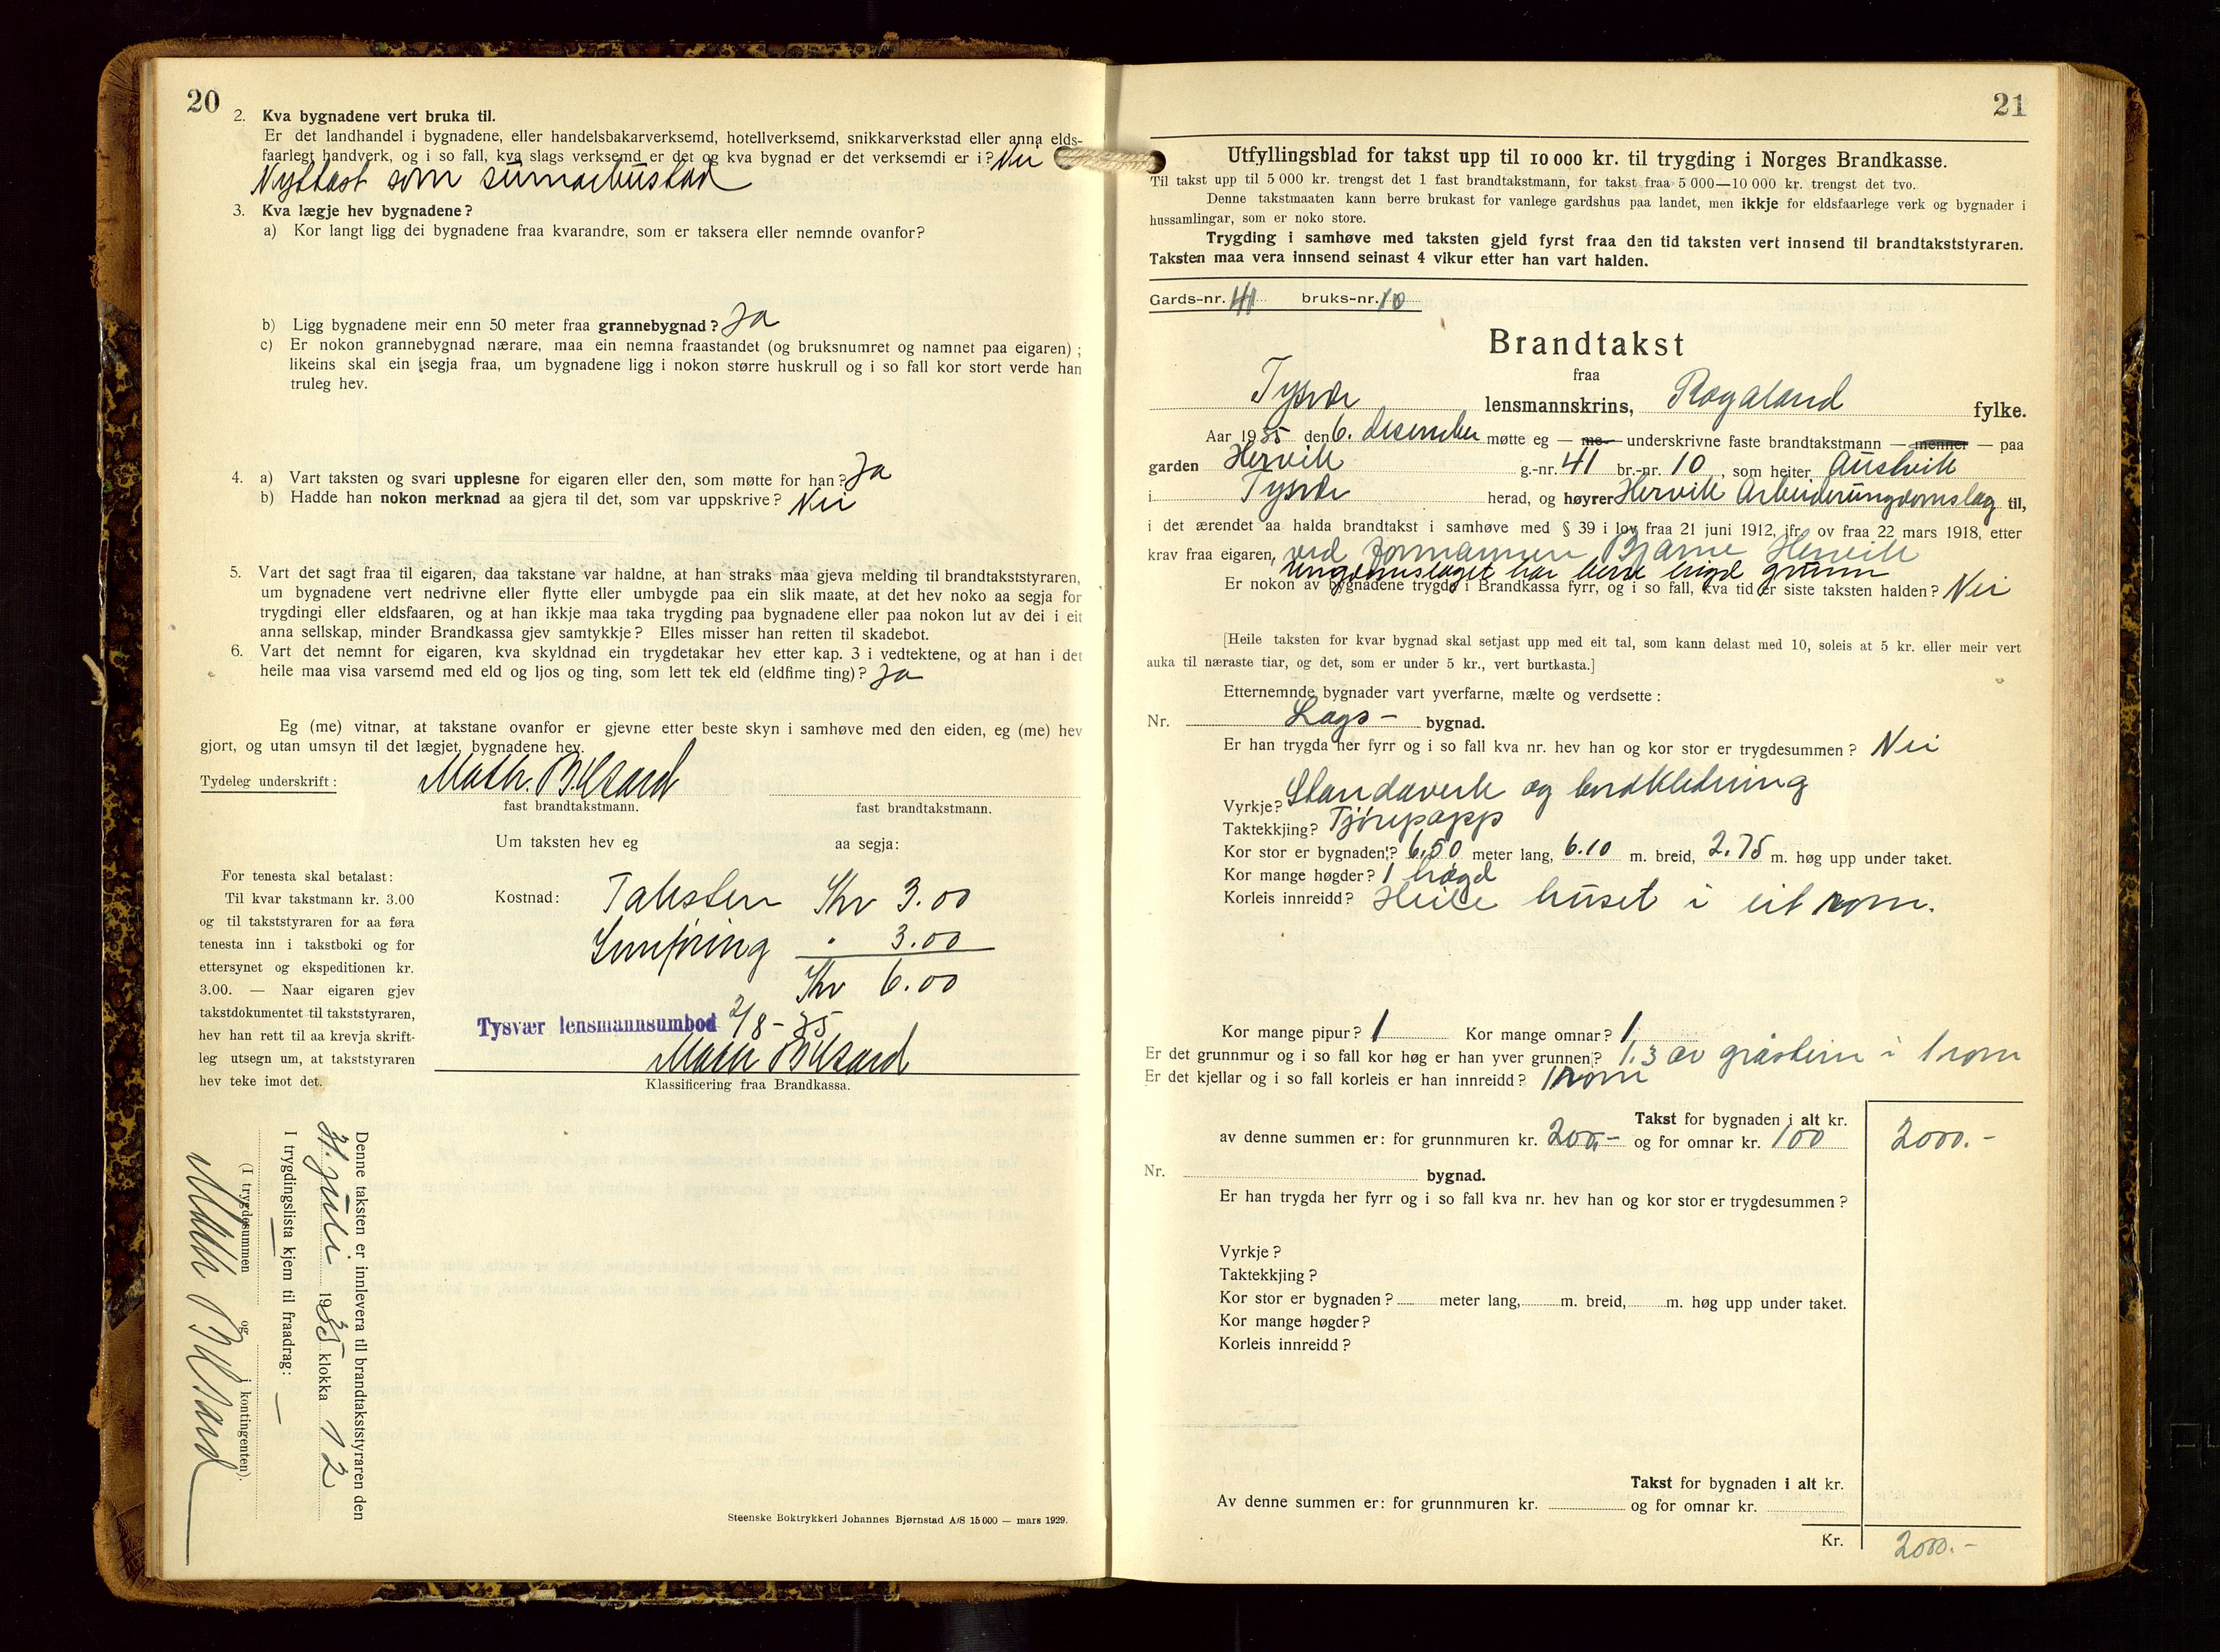 20
2. Kva bygnadene vert bruka til.
Er det landhandel i bygnadene, eller handelsbakarverksemd, hotellverksemd, snikkarverkstad eller anna elds-
faarlegt handverk, og i so fall, kva slags verksemd er det og kva bygnad er det verksemdi er i? Nei
Nyttast som sumarbustad
3. Kva lægje hev bygnadene?
a) Kor langt ligg dei bygnadene fraa kvarandre, som er taksera eller nemnde ovanfor?
b) Ligg bygnadene meir enn 50 meter fraa grannebygnad? Ja
c) Er nokon grannebygnad nærare, maa ein nemna fraastandet (og bruksnumret og namnet paa eigaren);
likeins skal ein segja fraa, um bygnadene ligg i nokon større huskrull og i so fall kor stort verde han
truleg hev.
4. a) Vart taksten og svari upplesne for eigaren eller den, som møtte for han? Ja
b) Hadde han nokon merknad aa gjera til det, som var uppskrive? Nei
5. Vart det sagt fraa til eigaren, daa takstane var haldne, at han straks maa gjeva melding til brandtakststyraren,
um bygnadene vert nedrivne eller flytte eller umbygde paa ein slik maate, at det hev noko aa segja for
trygdingi eller eldsfaaren, og at han ikkje maa taka trygding paa bygnadene eller paa nokon lut av dei i eit
anna sellskap, minder Brandkassa gjev samtykkje? Elles misser han retten til skadebot.
6. Vart det nemnt for eigaren, kva skyldnad ein trygdetakar hev etter kap. 3 i vedtektene, og at han i det
heile maa visa varsemd med eld og ljos og ting, som lett tek eld (eldfime ting)? Ja
Eg (me) vitnar, at takstane ovanfor er gjevne etter beste skyn i samhøve med den eiden, eg (me) hev
gjort, og utan umsyn til det lægjet, bygnadene hev.
Tydeleg underskrift: Math. Bilsard
fast brandtakstmann. fast brandtakstmann.
Um taksten hev eg aa segja:
For tenesta skal betalast:
Til kvar takstmann kr. 3.00
og til takststyraren for aa føra
tenesta inn i takstboki og for
ettersynet og ekspeditionen kr.
3.00. — Naar eigaren gjev
takstdokumentet til takststyraren,
hev han rett til aa krevja skrift-
leg utsegn um, at takststyraren
hev teke imot det.
Kostnad: Taksten Kr 3.00
Innføring " 3.00
Kr 6.00
Tysvær lensmannsumbod 2/8-35
Math Bilsard
Klassificering fraa Brandkassa.
Denne taksten er innlevera til brandtakststyraren den
31. juli 1935 klokka 12
I trygdingslista kjem til fraadrag: —
(I trygdesummen — og i kontingenten).
Math Bilsard
Steenske Boktrykkeri Johannes Bjørnstad A/S 15 000 — mars 1929.
21
Utfyllingsblad for takst upp til 10 000 kr. til trygding i Norges Brandkasse.
Til takst upp til 5 000 kr. trengst det 1 fast brandtakstmann, for takst fraa 5 000—10 000 kr. trengst det tvo.
Denne takstmaaten kann berre brukast for vanlege gardshus paa landet, men ikkje for eldsfaarlege verk og bygnader i
hussamlingar, som er noko store.
Trygding i samhøve med taksten gjeld fyrst fraa den tid taksten vert innsend til brandtakststyraren.
Taksten maa vera innsend seinast 4 vikur etter han vart halden.
Gards-nr. 41 bruks-nr. 10
Brandtakst
fraa
Tysvær lensmannskrins, Rogaland fylke.
Aar 1935 den 6. desember møtte eg — me — underskrivne faste brandtakstmann — menner — paa
garden Hervik g.-nr. 41 br.-nr. 10, som heiter Austvik
i Tysvær herad, og høyrer Hervik Arbeiderungdomslag til,
i det ærendet aa halda brandtakst i samhøve med § 39 i lov fraa 21 juni 1912, jfr. ov fraa 22 mars 1918, etter
krav fraa eigaren, ved formannen Bjarne Hervik
ungdomslaget har berre bygd grunn
Er nokon av bygnadene trygda i Brandkassa fyrr, og i so fall, kva tid er siste taksten halden? Nei
[Heile taksten for kvar bygnad skal setjast upp med eit tal, som kann delast med 10, soleis at 5 kr. eller meir vert
auka til næraste tiar, og det, som er under 5 kr., vert burtkasta.]
Etternemnde bygnader vart yverfarne, mælte og verdsette:
Nr. Lags- bygnad.
Er han trygda her fyrr og i so fall kva nr. hev han og kor stor er trygdesummen? Nei
Vyrkje? Standaverk og bordkledning
Taktekkjing? Tjørepapp
Kor stor er bygnaden? 6.50 meter lang, 6.10 m. breid, 2.75 m. høg upp under taket.
Kor mange høgder? 1 høgd
Korleis innreidd? Heile huset i eit rom.
Kor mange pipur? 1 Kor mange omnar? 1
Er det grunnmur og i so fall kor høg er han yver grunnen? 1.3 av gråstein i 1 rom
Er det kjellar og i so fall korleis er han innreidd? 1 rom
Takst for bygnaden i alt kr. 2000.-
av denne summen er: for grunnmuren kr. 200,- og for omnar kr. 100
Nr. bygnad.
Er han trygda her fyrr og i so fall kva nr. hev han og kor stor er trygdesummen?
Vyrkje?
Taktekkjing?
Kor stor er bygnaden? meter lang, m. breid, m. høg upp under taket.
Kor mange høgder?
Korleis innreidd?
Takst for bygnaden i alt kr.
Av denne summen er: for grunnmuren kr. og for omnar kr.
Kr. 2000.-